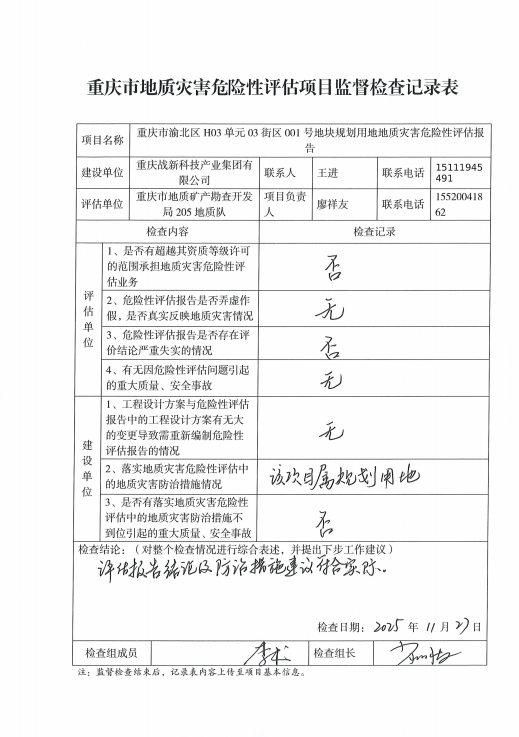 重庆市地质灾害危险性评估项目监督检查记录表
项目名称
重庆市渝北区 H03 单元 03 街区 001 号地块规划用地地质灾害危险性评估报
告
建设单位
重庆战新科技产业集团有
限公司
联系人
王进
联系电话
15111945
491
评估单位
重庆市地质矿产勘查开发
局 205 地质队
项目负责
人
廖祥友
联系电话
155200418
62
检查内容
检查记录
评估单位
1、是否有超越其资质等级许可
的范围承担地质灾害危险性评
估业务
否
2、危险性评估报告是否弄虚作
假，是否真实反映地质灾害情况
无
3、危险性评估报告是否存在评
价结论严重失实的情况
否
4、有无因危险性评估问题引起
的重大质量、安全事故
无
建设单位
1、工程设计方案与危险性评估
报告中的工程设计方案有无大
的变更导致需重新编制危险性
评估报告的情况
无
2、落实地质灾害危险性评估中
的地质灾害防治措施情况
该项目属规划用地
3、是否有落实地质灾害危险性
评估中的地质灾害防治措施不
到位引起的重大质量、安全事故
否
检查结论：（对整个检查情况进行综合表述，并提出下步工作建议）
评估报告结论及防治措施建议符合实际。
检查日期：2025 年 11 月 27 日
检查组成员
检查组长
注：监督检查结束后，记录表内容上传至项目基本信息。